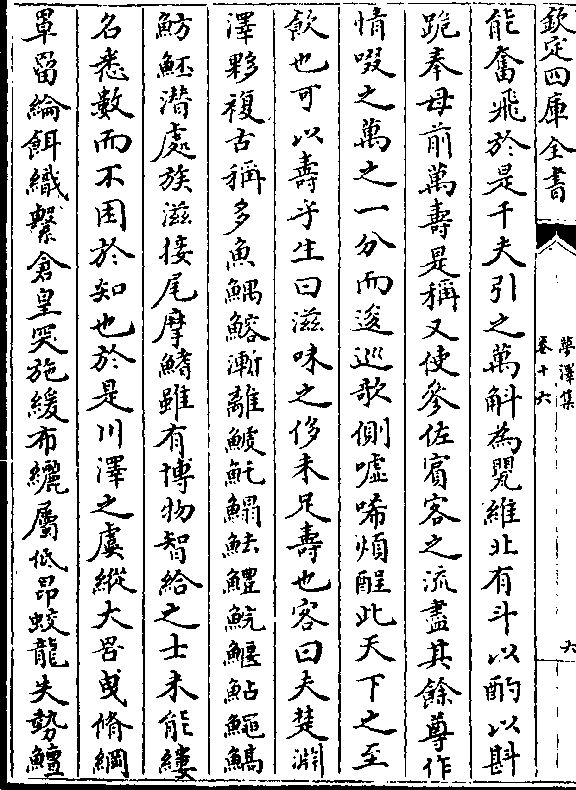 欽定四庫全書
夢澤集
卷十六
六
能奮飛於是千夫引之萬斛為甖維北有斗以酌以斟
跪奉母前萬壽是稱又使參佐賓客之流盡其餘尊作
情啜之萬之一分而逡巡歌側噓唏煩酲此天下之至
飲也可以壽乎生曰滋味之侈未足壽也客曰夫楚淵
澤夥複古稱多魚鰅鰫漸離鯪魠鰨魼鱧魧鰋鮎䱱鰝
魴魾潛處族滋接尾摩鰭雖有博物智給之士未能縷
名悉數而不困於知也於是川澤之虞縱大罟曵脩網
罩罶綸餌織繫倉皇突施緩布纚屬低昂蛟龍失勢鱣